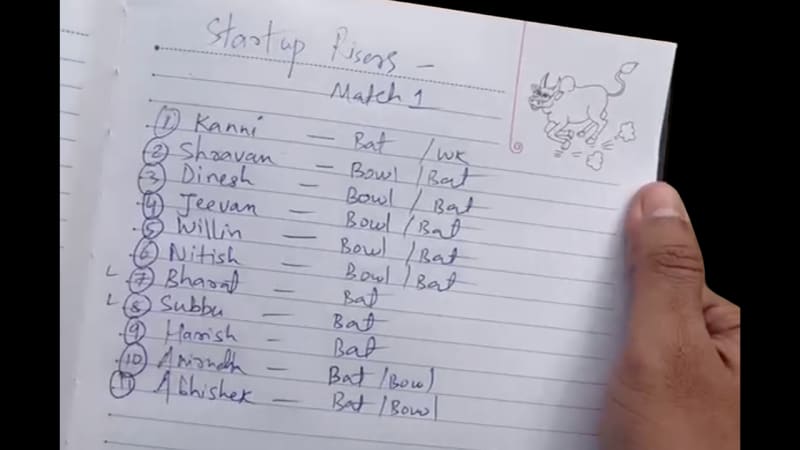 Startup Risers -
Match 1
1 Kanni - Bat / WK
2 Shravan - Bowl / Bat
3 Dinesh - Bowl / Bat
4 Jeevan - Bowl / Bat
5 Willin - Bowl / Bat
6 Nitish - Bowl / Bat
L 7 Bharat - Bat
L 8 Subbu - Bat
9 Harish - Bat
10 Anirudh - Bat / Bowl
11 Abhishek - Bat / Bowl